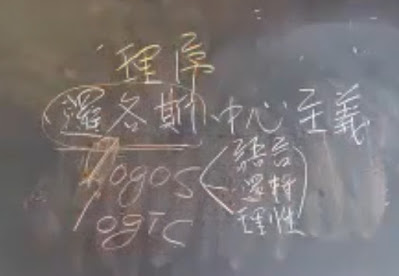 理序
邏各斯中心主義
Logos
語言
邏輯
理性
logic